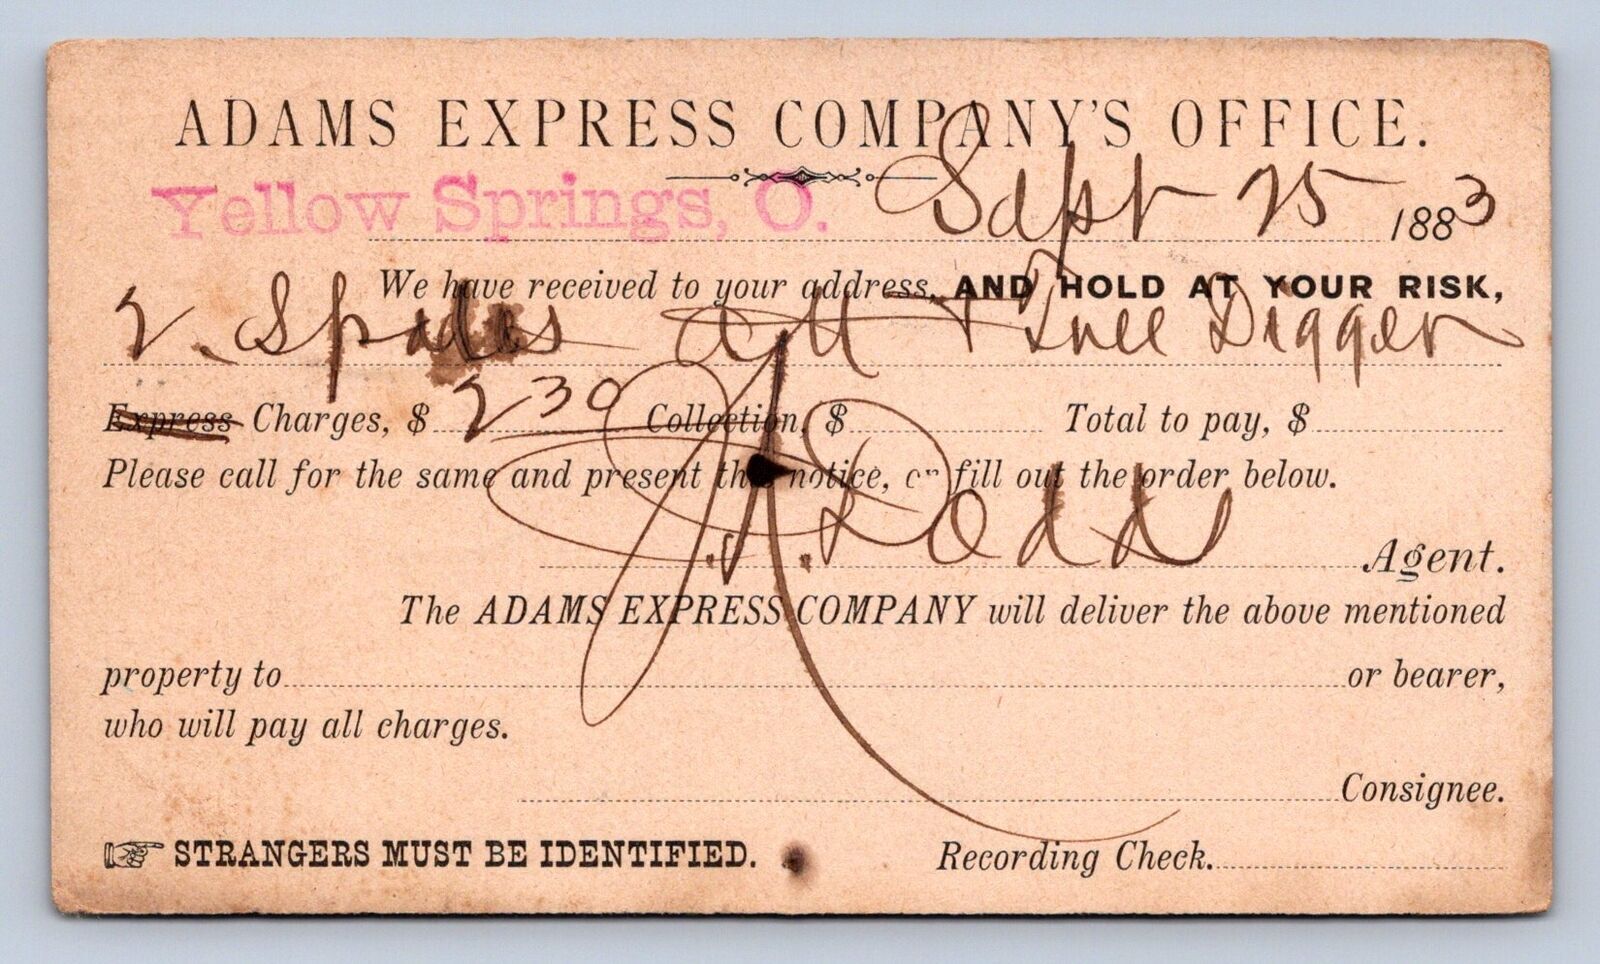 ADAMS EXPRESS COMPANY'S OFFICE.
Yellow Springs, O. Sept 25 1883
We have received to your address, AND HOLD AT YOUR RISK,
2 Spades Tree Digger
Express Charges, $ 2 30 Collection, $ Total to pay, $
Please call for the same and present this notice, or fill out the order below.
A. Dodd Agent.
The ADAMS EXPRESS COMPANY will deliver the above mentioned
property to or bearer,
who will pay all charges.
Consignee.
☞ STRANGERS MUST BE IDENTIFIED. Recording Check.